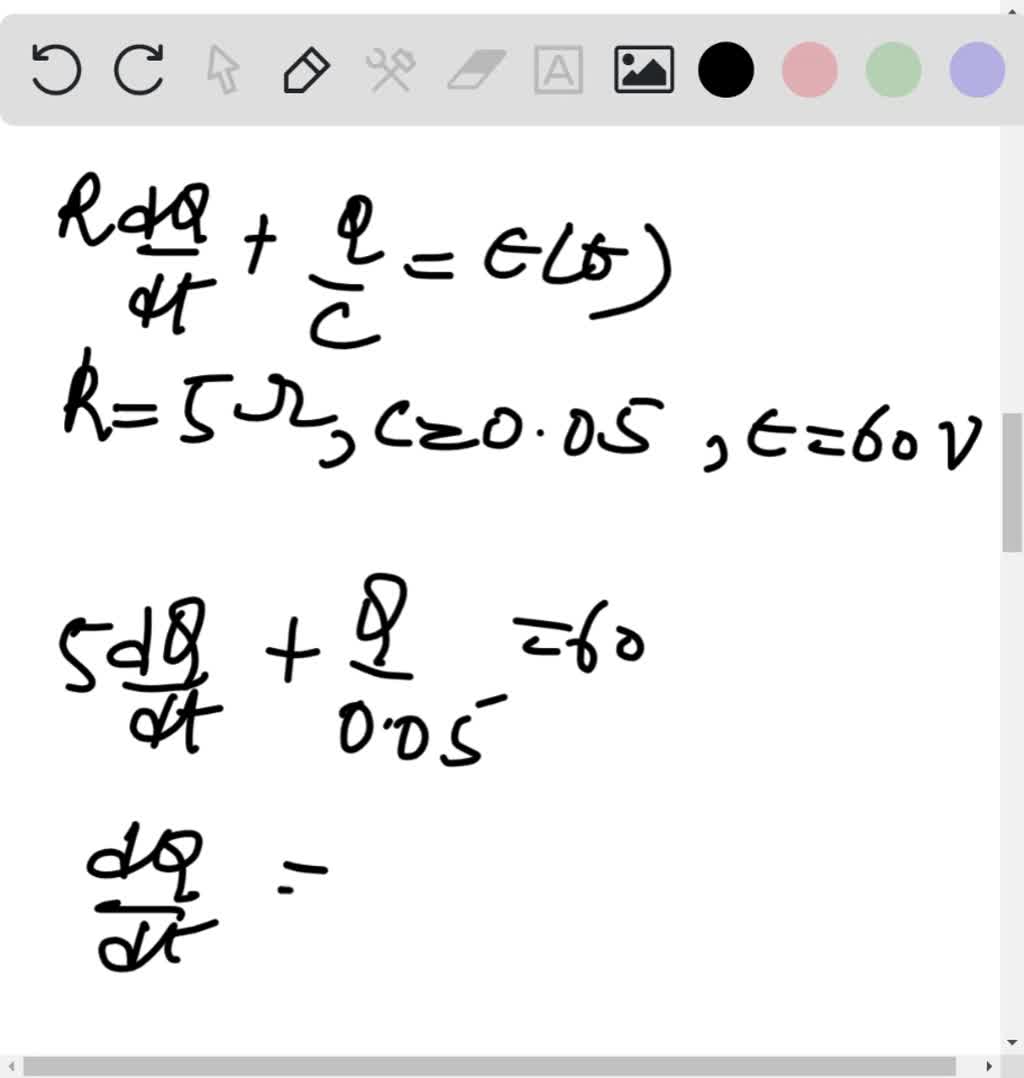 A
R dQ/dt + Q/C = E(t)
R = 5Ω, C = 0.05, E = 60 V
5 dQ/dt + Q/0.05 = 60
dQ/dt =